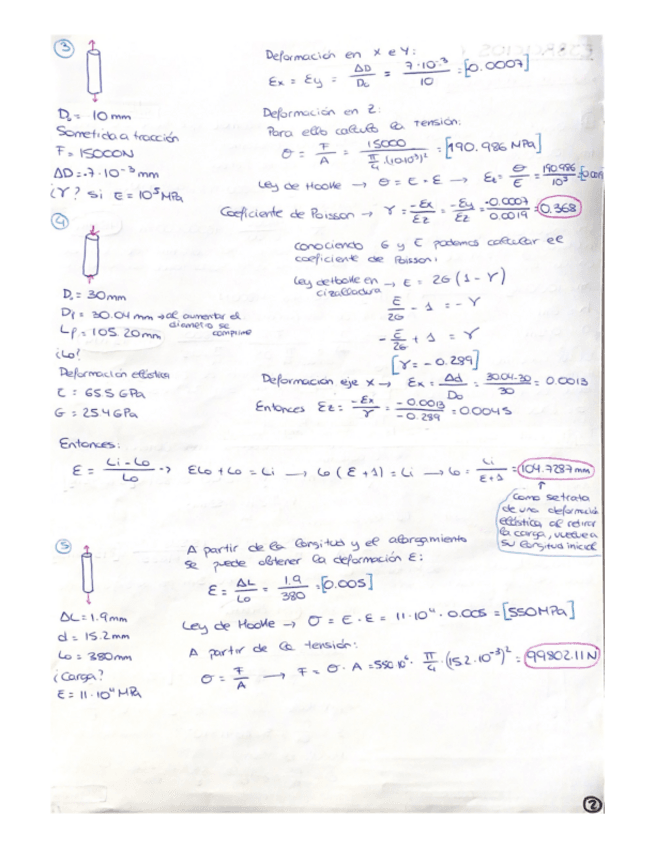 ③
D₀ = 10 mm
Sometida a tracción
F = 15000N
ΔD = -7·10⁻³ mm
¿γ? si E = 10⁵ MPa
Deformación en X e Y:
Ex = Ey = ΔD/D₀ = 7·10⁻³/10 = [-0.0007]
Deformación en Z:
Para ello calculo la tensión:
σ = F/A = 15000/(π/4·(10·10⁻³)²) = [190.986 MPa]
Ley de Hooke → σ = E·ε → εz = σ/E = 190.986/10⁵ =
Coeficiente de Poisson → γ = -εx/εz = -εy/εz = -0.0007/0.0019 = 0.368
④
D₀ = 30mm
Df = 30.04 mm → al aumentar el diámetro se comprime
Lf = 105.20mm
¿L₀?
Deformación elástica
E = 65.5 GPa
G = 25.4 GPa
Conociendo G y E podemos calcular el
coeficiente de Poisson:
Ley de Hooke en cizalladura → E = 2G (1 - γ)
E/2G - 1 = -γ
-E/2G + 1 = γ
[γ = -0.289]
Deformación eje x → Ex = Δd/D₀ = 30.04-30/30 = 0.0013
Entonces Ez = -Ex/γ = -0.0013/-0.289 = 0.0045
Entonces:
E = Li-L₀/L₀ → EL₀ + L₀ = Li → L₀(E+1) = Li → L₀ = Li/E+1 = 104.7287 mm
↑
Como se trata
de una deformación
elástica al retirar
la carga, vuelve a
su longitud inicial
⑤
ΔL = 1.9mm
d = 15.2mm
L₀ = 380mm
¿Carga?
E = 11·10⁴ MPa
A partir de la longitud y el alargamiento
se puede obtener la deformación ε:
ε = ΔL/L₀ = 1.9/380 = [0.005]
Ley de Hooke → σ = E·ε = 11·10⁴·0.005 = [550MPa]
A partir de la tensión:
σ = F/A → F = σ·A = 550·10⁶·π/4·(15.2·10⁻³)² = 99802.11N
②